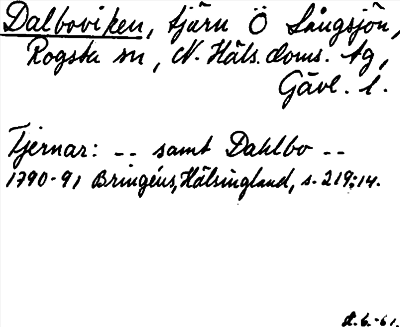 Dalboviken, tjärn Ö Långsjön,
Rogsta sn, N. Häls. doms. tg,
Gävl. l.
Tjernar: -- samt Dahlbo --
1790-91 Bringéus, Hälsingland, s. 219:14.
d. 6. -61.